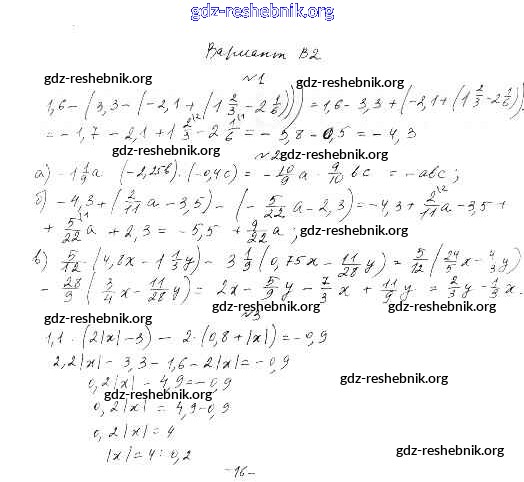 gdz-reshebnik.org
Вариант В2
gdz-reshebnik.org
№1
gdz-reshebnik.org
1,6 - (3,3 - (-2,1 + (1 2/3 - 2 1/6))) = 1,6 - 3,3 + (-2,1 + (1 2/3 - 2 1/6)) =
= -1,7 - 2,1 + 1 2/3 - 2 1/6 = -3,8 - 0,5 = -4,3
gdz-reshebnik.org
№2
gdz-reshebnik.org
а) -1 1/9 a · (-2,25b) · (-0,4c) = -10/9 a · 9/10 bc = -abc;
б) -4,3 + (2/11 a - 3,5) - (-5/22 a - 2,3) = -4,3 + 2/11 a - 3,5 +
+ 5/22 a + 2,3 = -5,5 + 9/22 a;
gdz-reshebnik.org
gdz-reshebnik.org
в) 5/12 · (4,8x - 1 1/3 y) - 3 1/9 (0,75x - 11/28 y) = 5/12 (24/5 x - 4/3 y)
- 28/9 (3/4 x - 11/28 y) = 2x - 5/9 y - 7/3 x + 11/9 y = 2/3 y - 1/3 x.
gdz-reshebnik.org
gdz-reshebnik.org
№3
1,1 · (2|x| - 3) - 2 · (0,8 + |x|) = -0,9
2,2|x| - 3,3 - 1,6 - 2|x| = -0,9
0,2|x| - 4,9 = -0,9
gdz-reshebnik.org
gdz-reshebnik.org
0,2|x| = 4,9 - 0,9
0,2|x| = 4
|x| = 4 : 0,2
gdz-reshebnik.org
-16-